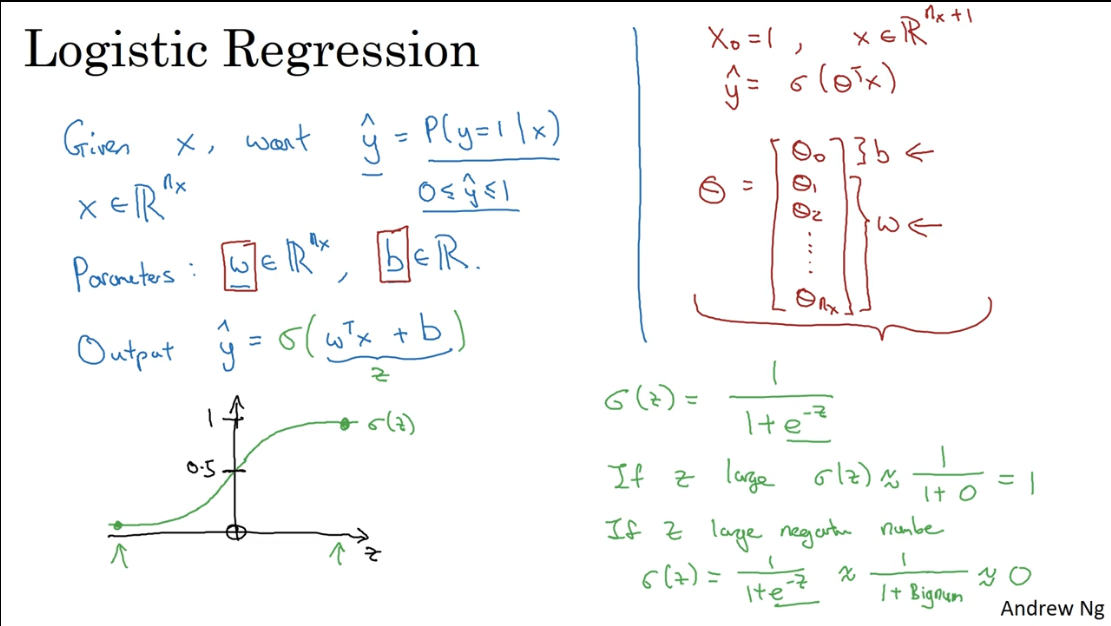 Logistic Regression
Given x, want ŷ = P(y=1|x)
x ∈ ℝ^nx
0 ≤ ŷ ≤ 1
Parameters: w ∈ ℝ^nx, b ∈ ℝ.
Output ŷ = σ(wᵀx + b)
z
1
σ(z)
0.5
z
x₀ = 1, x ∈ ℝ^nx+1
ŷ = σ(θᵀx)
θ = [θ₀ θ₁ θ₂ ⋮ θnx]
} b ←
} w ←
σ(z) = 1/(1+e^-z)
If z large σ(z) ≈ 1/(1+0) = 1
If z large negative number
σ(z) = 1/(1+e^-z) ≈ 1/(1+Bignum) ≈ 0
Andrew Ng